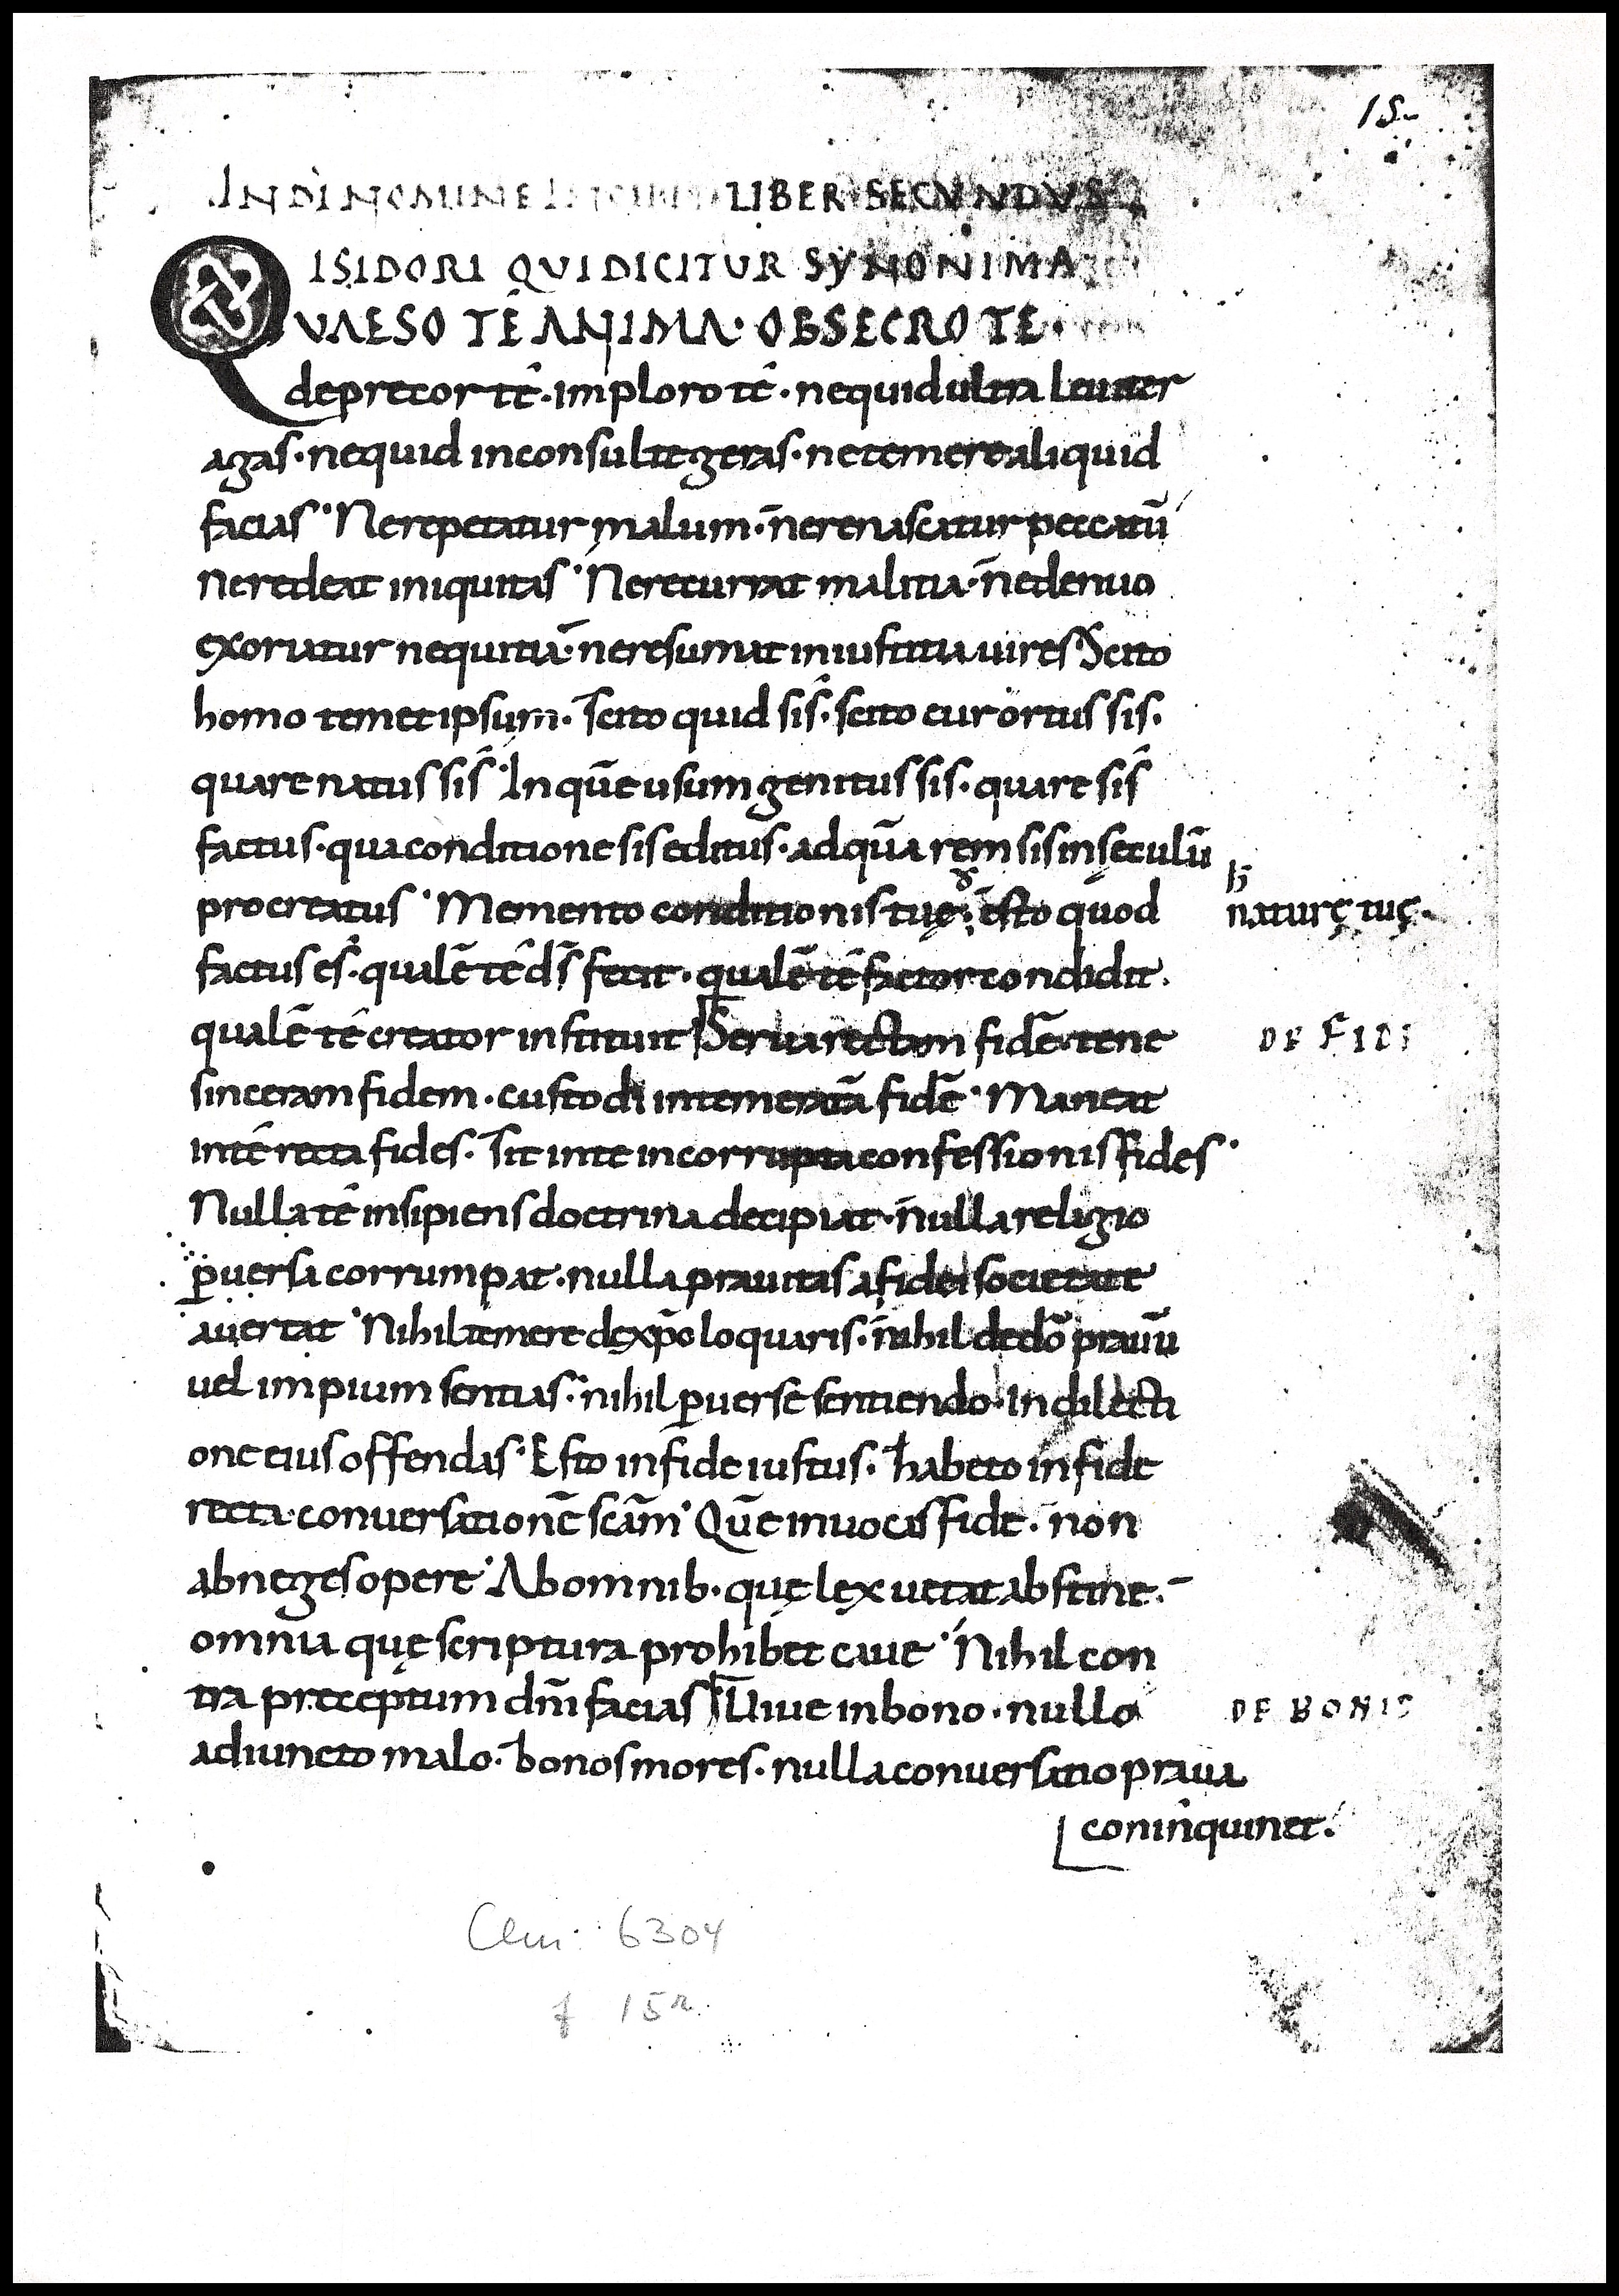 15
IN DI NOMINE INCIPIT LIBER SECUNDUS
ISIDORI QUI DICITUR SYNONIMA
QUAESO TE ANIMA · OBSECRO TE ·
deprecor tê · imploro tê · nequid ultra leuiter
agas · nequid inconsulte geras · ne temere aliquid
facias · Ne repetatur malum · ne renascatur peccatū
ne redeat iniquitas · Ne recurrat malitia · ne denuo
exoriatur nequitia · ne resumat iniustitia uires Scito
homo temet ipsum · scito quid sis · scito cur ortus sis ·
quare natus sis · In quē usum genitus sis · quare sis
factus · qua conditione sis editus · ad quā rem sis in sęculū
procreatus · Memento conditionis tuę · esto quod
naturę tuę ·
factus es · qualē tê d̄s fecit · qualē tê factor condidit ·
qualē tê creator instituit Serua rectam fidē · tene
DE FIDE
sinceram fidem · custodi intemeratā fidē · Maneat
in tê recta fides · sit in te incorrupta confessionis fides ·
Nulla tê insipiens doctrina decipiat · nulla religio
ꝑuersa corrumpat · nulla prauitas a fidei societate
auertat · Nihil temere de xp̄o loquaris · nihil de dō prauū
uel impium sentias · nihil ꝑuerse sentiendo · In dilecti
one eius offendas · Esto in fide iustus · habeto in fide
recta conuersationē scām · Quē inuocas fide · non
abneges opere · Ab omnib · quę lex uetat abstine ·
omnia quę scriptura prohibet caue · Nihil con
tra preceptum dn̄i facias Uiue in bono · nullo
DE BONIS
adiuncto malo · bonos mores · nulla conuersatio praua
coninquinet ·
Clm 6304
f 15r